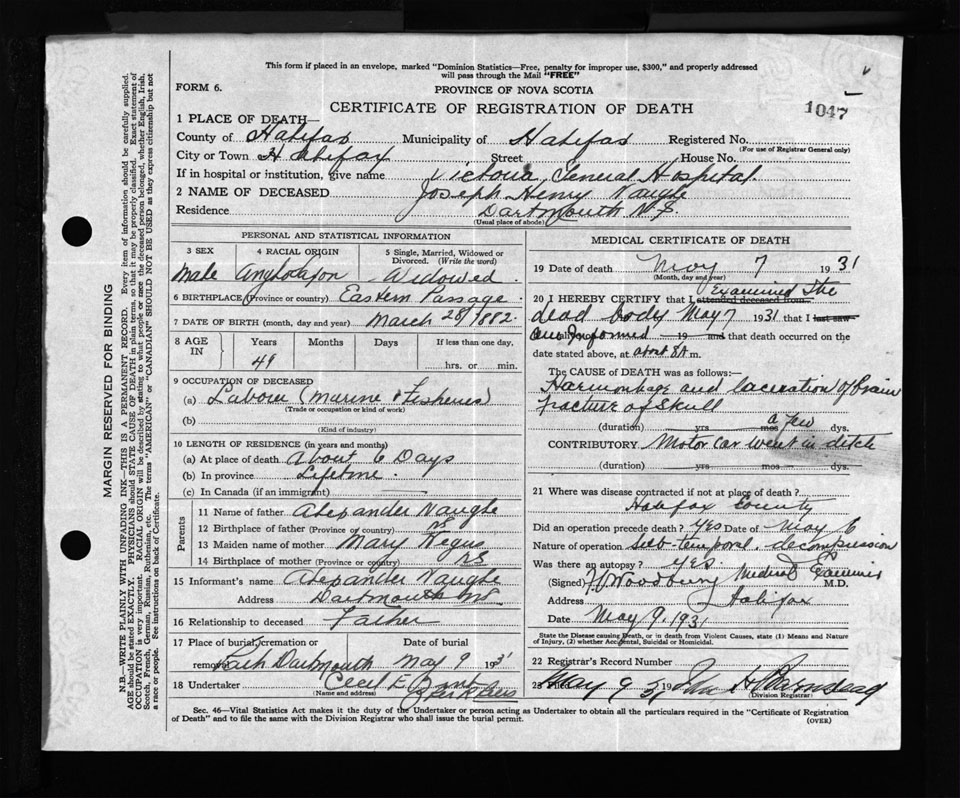 This form if placed in an envelope, marked "Dominion Statistics—Free, penalty for improper use, $300," and properly addressed
will pass through the Mail "FREE"
FORM 6.
PROVINCE OF NOVA SCOTIA
CERTIFICATE OF REGISTRATION OF DEATH
1047
1 PLACE OF DEATH—
County of Halifax Municipality of Halifax Registered No.
(For use of Registrar General only)
City or Town Halifax Street House No.
If in hospital or institution, give name Victoria General Hospital
2 NAME OF DECEASED Joseph Henry Naugle
Residence Dartmouth N.S.
(Usual place of abode)
PERSONAL AND STATISTICAL INFORMATION
3 SEX
4 RACIAL ORIGIN
5 Single, Married, Widowed or Divorced. (Write the word)
Male Anglo Saxon Widowed
6 BIRTHPLACE (Province or country) Eastern Passage
7 DATE OF BIRTH (month, day and year) March 28/1882
8 AGE IN
Years Months Days If less than one day,
49
hrs. or min.
9 OCCUPATION OF DECEASED
(a) Labour (Marine & Fisheries)
(Trade or occupation or kind of work)
(b)
(Kind of industry)
10 LENGTH OF RESIDENCE (in years and months)
(a) At place of death About 6 Days
(b) In province Lifetime
(c) In Canada (if an immigrant)
Parents
11 Name of father Alexander Naugle
12 Birthplace of father (Province or country) NS
13 Maiden name of mother Mary Negus
14 Birthplace of mother (Province or country) NS
15 Informant's name Alexander Naugle
Address Dartmouth NS
16 Relationship to deceased Father
17 Place of burial, cremation or Date of burial
removal Dartmouth May 9 1931
18 Undertaker Cecil E
(Name and address)
MEDICAL CERTIFICATE OF DEATH
19 Date of death May 7 1931
(Month, day and year)
Examined The
20 I HEREBY CERTIFY that I attended deceased from
dead body May 7 1931 that I last saw
Informed 19 and that death occurred on
date stated above, at about 8 A m.
The CAUSE of DEATH was as follows:
Harmorhage and laceration of Brain
Fracture of Skull
(duration) yrs mos a few dys.
CONTRIBUTORY Motor car went in ditch
(duration) yrs mos dys.
21 Where was disease contracted if not at place of death?
Halifax County
Did an operation precede death? Yes Date of May 6
Nature of operation Sub-temporal decompression
Was there an autopsy? Yes.
(Signed) Woodbury Medical Examiner M.D.
Address Halifax
Date May 9. 1931
State the Disease causing Death, or in death from Violent Causes, state (1) Means and Nature
of Injury, (2) whether Accidental, Suicidal or Homicidal.
22 Registrar's Record Number
23 Filed May 9 31 19 John H Barnstead
(Division Registrar)
Sec. 46—Vital Statistics Act makes it the duty of the Undertaker or person acting as Undertaker to obtain all the particulars required in the "Certificate of Registration
of Death" and to file the same with the Division Registrar who shall issue the burial permit.
(OVER)
MARGIN RESERVED FOR BINDING
N.B.—WRITE PLAINLY WITH UNFADING INK—THIS IS A PERMANENT RECORD. Every item of information should be carefully supplied.
AGE should be stated EXACTLY. PHYSICIANS should STATE CAUSE OF DEATH in plain terms, so that it may be properly classified. Exact statement of
OCCUPATION is very important. RACIAL ORIGIN will be described by stating to what people or race the deceased person belonged, whether English, Irish,
Scotch, French, German, Russian, Ruthenian, etc. The terms "AMERICAN" or "CANADIAN" SHOULD NOT BE USED as they express citizenship but not
a race or people. See instructions on back of Certificate.